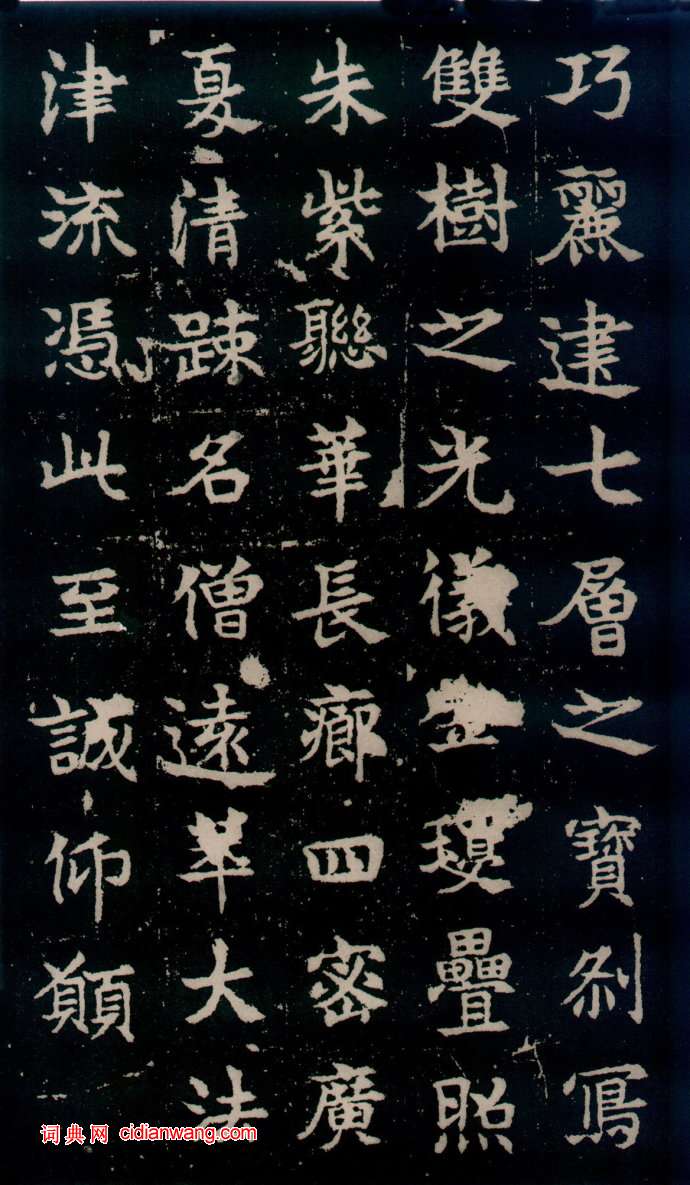 巧麗建七層之寶刹寫
雙樹之光儀金瓊疊照
朱紫聯華長廊四密廣
夏清踈名僧遠萃大法
津流憑此至誠仰願
词典网 cidianwang.com